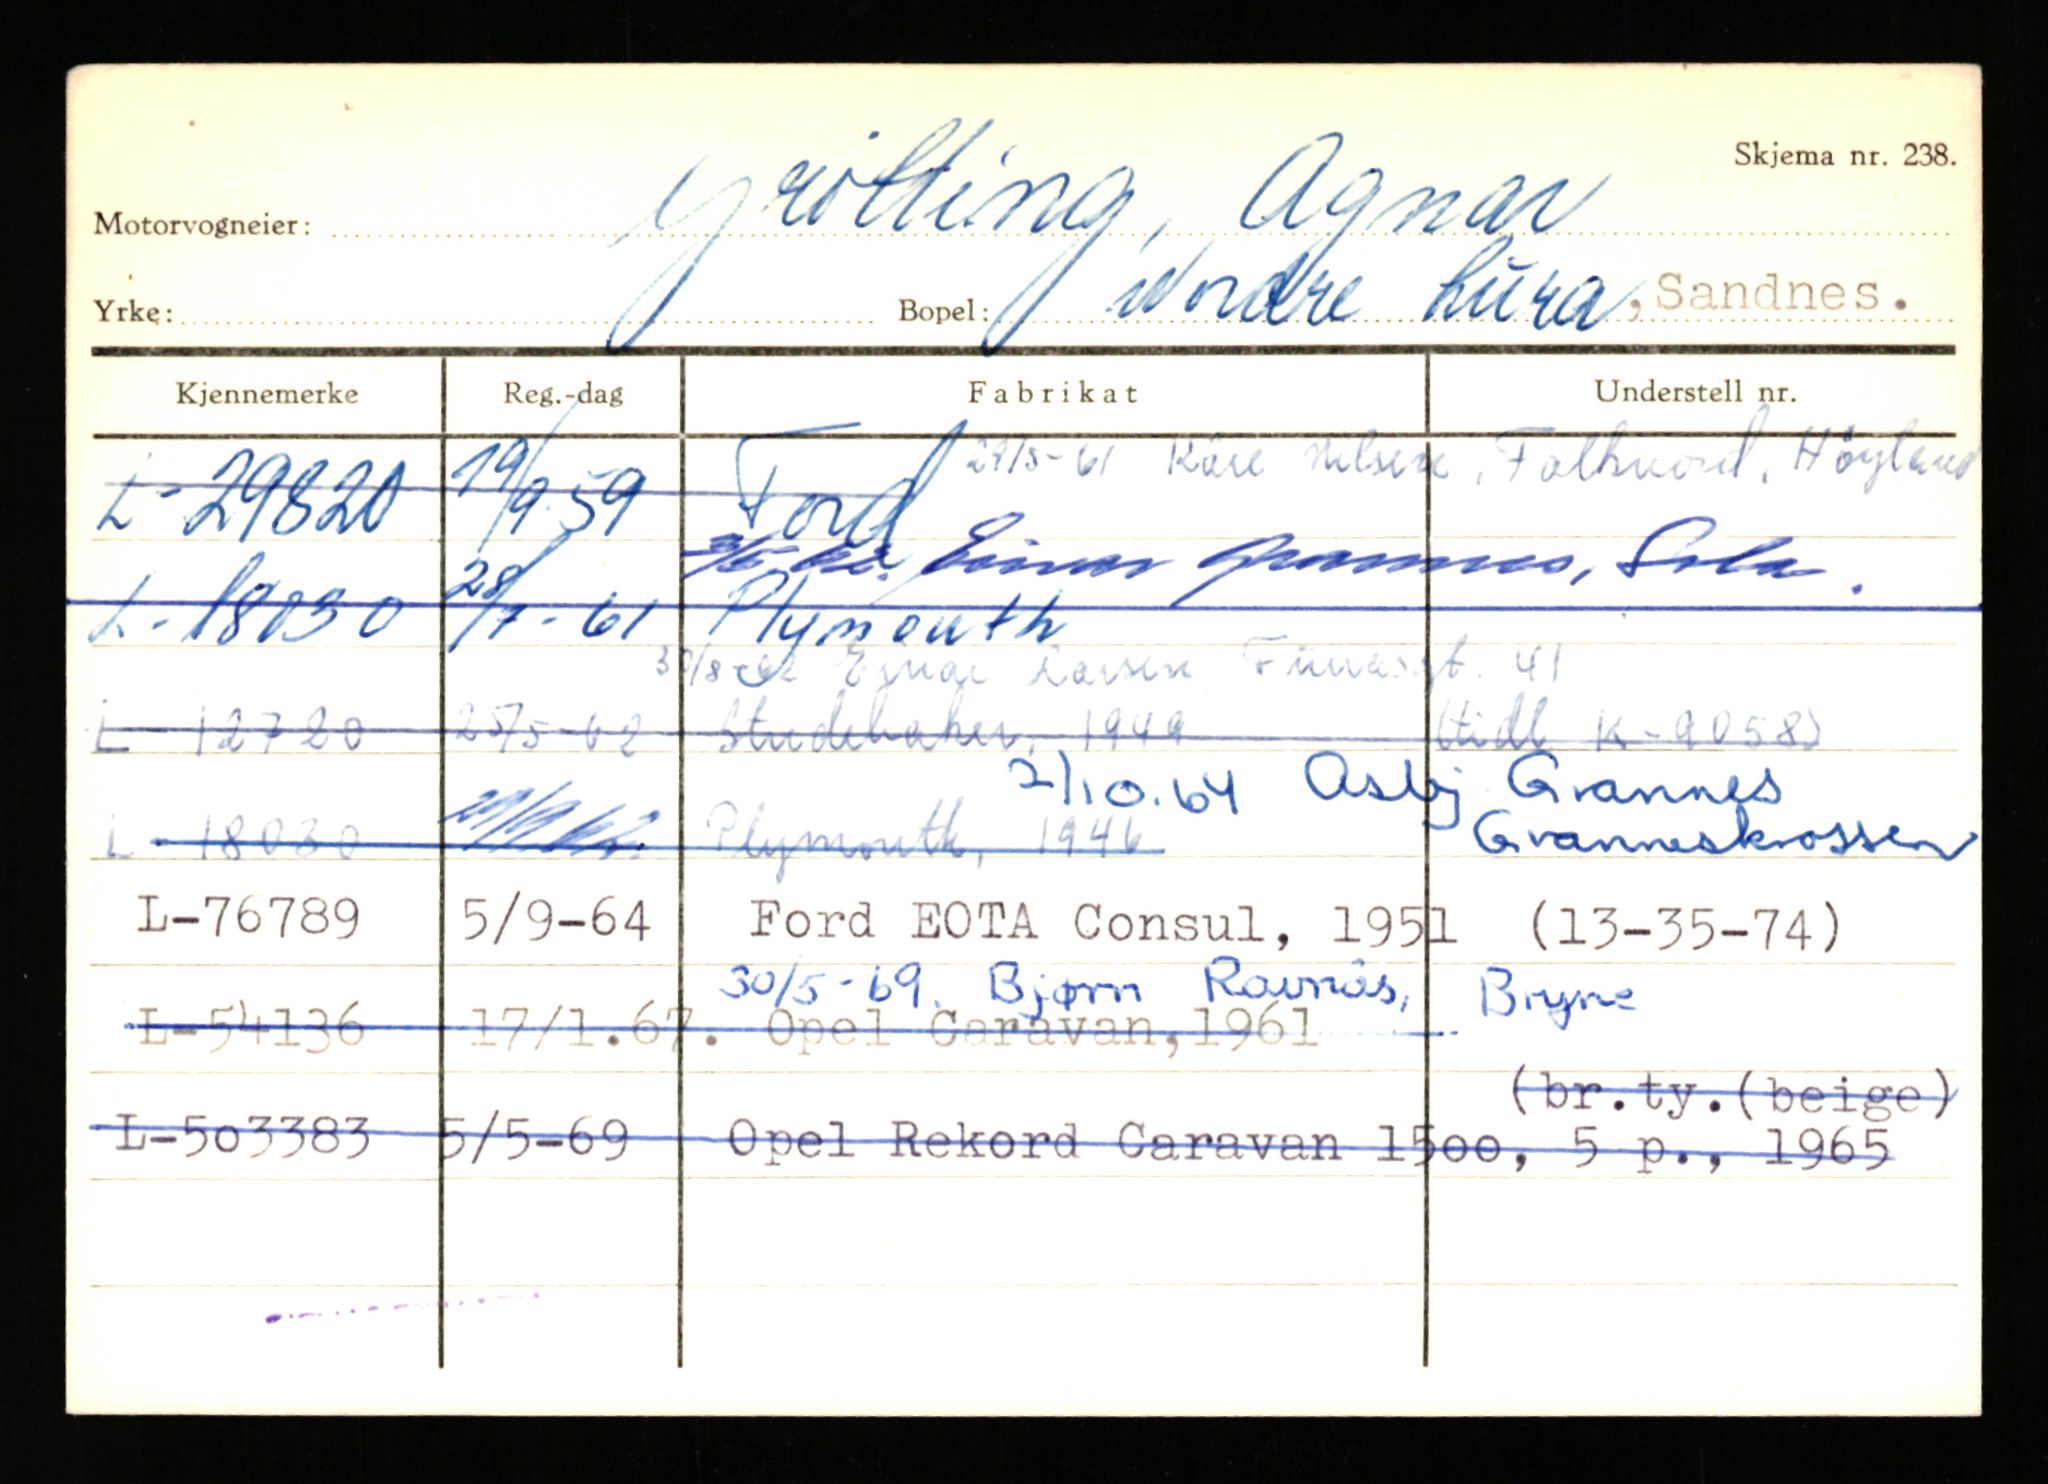 Skjema nr. 238.
Motorvogneier: Grötting, Agnar
Yrke: Bopel: Nordre Lura, Sandnes.
Kjennemerke Reg.-dag Fabrikat Understell nr.
27/5-61 Kåre Nilsen, Folkvord, Höyland
L-29820 19/9.59 Ford
Einar Grannes, Sola.
L-18030 28/7-61 Plymouth
30/8-62 Einar Larsen 41
L-12720 25/5-62 Studebaker, 1949 (tidl K-9058)
2/10.64 Asbj Grannes
Granneskrossen
L-18030 Plymouth, 1946
L-76789 5/9-64 Ford EOTA Consul, 1951 (13-35-74)
30/5-69. Bjørn Ravnås, Bryne
L-54136 17/1.67. Opel Caravan,1961
(br.ty.(beige)
L-503383 5/5-69 Opel Rekord Caravan 1500, 5 p., 1965